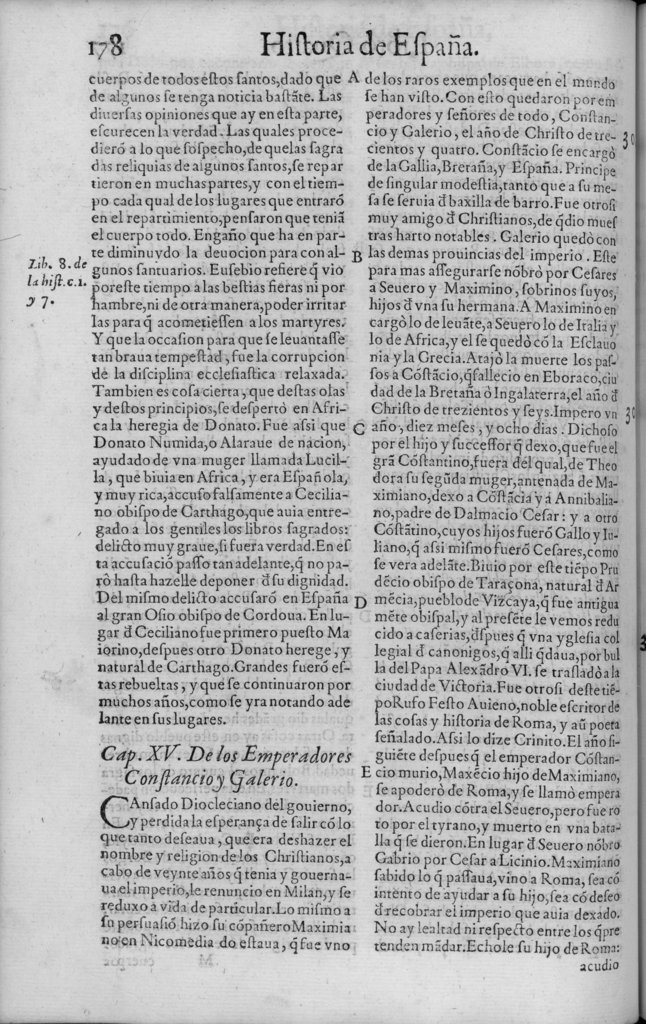 178 Historia de España.
cuerpos de todos estos santos, dado que
de algunos se tenga noticia bastãte. Las
diuersas opiniones que ay en esta parte,
escurecen la verdad. Las quales proce-
dierõ a lo que sospecho, de que las sagra
das reliquias de algunos santos, se repar
tieron en muchas partes, y con el tiem-
po cada qual de los lugares que entrarõ
en el repartimiento, pensaron que teniã
el cuerpo todo. Engaño que ha en par-
te diminuydo la deuocion para con al-
gunos santuarios. Eusebio refiere q̃ vio
por este tiempo a las bestias fieras ni por
hambre, ni de otra manera, poder irritar
las para q̃ acometiessen a los martyres.
Y que la occasion para que se leuantasse
tan braua tempestad, fue la corrupcion
de la disciplina ecclesiastica relaxada.
Tambien es cosa cierta, que destas olas
y destos principios, se despertò en Afri-
ca la heregia de Donato. Fue assi que
Donato Numida, o Alaraue de nacion,
ayudado de vna muger llamada Lucil-
la, que biuia en Africa, y era Española,
y muy rica, accuso falsamente a Cecilia-
no obispo de Carthago, que auia entre-
gado a los gentiles los libros sagrados:
delicto muy graue, si fuera verdad. En es
ta accusaciõ passo tan adelante, q̃ no pa-
rò hasta hazelle deponer đ su dignidad.
Del mismo delicto accusarõ en España
al gran Osio obispo de Cordoua. En lu-
gar đ Ceciliano fue primero puesto Ma
iorino, despues otro Donato herege, y
natural de Carthago. Grandes fuerõ es-
tas rebueltas, y que se continuaron por
muchos años, como se yra notando ade
lante en sus lugares.
Cap. XV. De los Emperadores
Constancio y Galerio.
CAnsado Diocleciano del gouierno,
y perdida la esperança de salir cõ lo
que tanto deseaua, que era deshazer el
nombre y religion de los Christianos, a
cabo de veynte años q̃ tenia y gouerna-
ua el imperio, le renuncio en Milan, y se
reduxo a vida de particular. Lo mismo a
su persuasiõ hizo su cõpañero Maximia
no en Nicomedia do estaua, q̃ fue vno
Lib. 8. de
la hist. c. 1.
y 7.
A
B
C
D
E
de los raros exemplos que en el mundo
se han visto. Con esto quedaron por em
peradores y señores de todo, Constan-
cio y Galerio, el año de Christo de tre-
cientos y quatro. Constãcio se encargò
de la Gallia, Bretaña, y España. Principe
de singular modestia, tanto que a su me-
sa se seruia đ baxilla de barro. Fue otrosi
muy amigo đ Christianos, de q̃ dio mues
tras harto notables. Galerio quedò con
las demas prouincias del imperio. Este
para mas assegurarse nõbrò por Cesares
a Seuero y Maximino, sobrinos suyos,
hijos đ vna su hermana. A Maximino en
cargò lo de leuãte, a Seuero lo de Italia y
lo de Africa, y el se quedò cõ la Esclauo
nia y la Grecia. Atajò la muerte los pas-
sos a Cõstãcio, q̃ fallecio en Eboraco, ciu
dad de la Bretaña ò Ingalaterra, el año đ
Christo de trezientos y seys. Impero vn
año, diez meses, y ocho dias. Dichoso
por el hijo y successor q̃ dexo, que fue el
grã Cõstantino, fuera del qual, de Theo
dora su segũda muger, antenada de Ma-
ximiano, dexo a Cõstãcia y a Annibalia-
no, padre de Dalmacio Cesar: y a otro
Cõstãtino, cuyos hijos fuerõ Gallo y Iu-
liano, q̃ assi mismo fuerõ Cesares, como
se vera adelãte. Biuio por este tiẽpo Pru
dẽcio obispo de Taraçona, natural đ Ar
mẽcia, pueblo de Vizcaya, q̃ fue antigua
mẽte obispal, y al presẽte le vemos redu
cido a caserias, đspues q̃ vna yglesia col
legial đ canonigos, q̃ alli q̃daua, por bul
la del Papa Alexãdro VI. se trasladò a la
ciudad de Victoria. Fue otrosi deste tiẽ-
po Rufo Festo Auieno, noble escritor de
las cosas y historia de Roma, y aũ poeta
señalado. Assi lo dize Crinito. El año si-
guiẽte despues q̃ el emperador Cõstan-
cio murio, Maxẽcio hijo de Maximiano,
se apoderò de Roma, y se llamò empera
dor. Acudio cõtra el Seuero, pero fue ro
to por el tyrano, y muerto en vna bata-
lla q̃ se dieron. En lugar đ Seuero nõbrò
Gabrio por Cesar a Licinio. Maximiano
sabido lo q̃ passaua, vino a Roma, sea cõ
intento de ayudar a su hijo, sea cõ deseo
đ recobrar el imperio que auia dexado.
No ay lealtad ni respecto entre los q̃ pre
tenden mãdar. Echole su hijo de Roma:
acudio